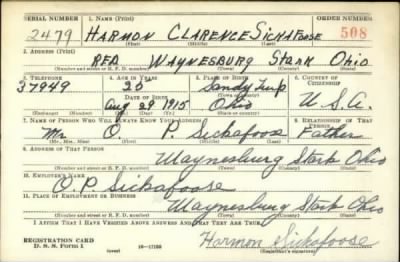 SERIAL NUMBER 1. NAME (Print) ORDER NUMBER
2479 HARMON CLARENCE SICKAFOOSE 508
(First) (Middle) (Last)
2. ADDRESS (Print)
RFD WAYNESBURG Stark Ohio
(Number and street or R. F. D. number) (Town) (County) (State)
3. TELEPHONE 4. AGE IN YEARS 5. PLACE OF BIRTH 6. COUNTRY OF CITIZENSHIP
37949 25 Sandy Twp
DATE OF BIRTH (Town or county)
Aug 29 1915 Ohio U.S.A.
(Mo.) (Day) (Yr.) (State or country)
7. NAME OF PERSON WHO WILL ALWAYS KNOW YOUR ADDRESS 8. RELATIONSHIP OF THAT PERSON
Mr. O. P. Sickafoose Father
(Mr., Mrs., Miss) (First) (Middle) (Last)
9. ADDRESS OF THAT PERSON
Waynesburg Stark Ohio
(Number and street or R. F. D. number) (Town) (County) (State)
10. EMPLOYER'S NAME
O. P. Sickafoose
11. PLACE OF EMPLOYMENT OR BUSINESS
Waynesburg Stark Ohio
(Number and street or R. F. D. number) (Town) (County) (State)
I AFFIRM THAT I HAVE VERIFIED ABOVE ANSWERS AND THAT THEY ARE TRUE.
REGISTRATION CARD
D. S. S. Form 1 (over) 16-17105 Harmon Sickafoose
(Registrant's signature)